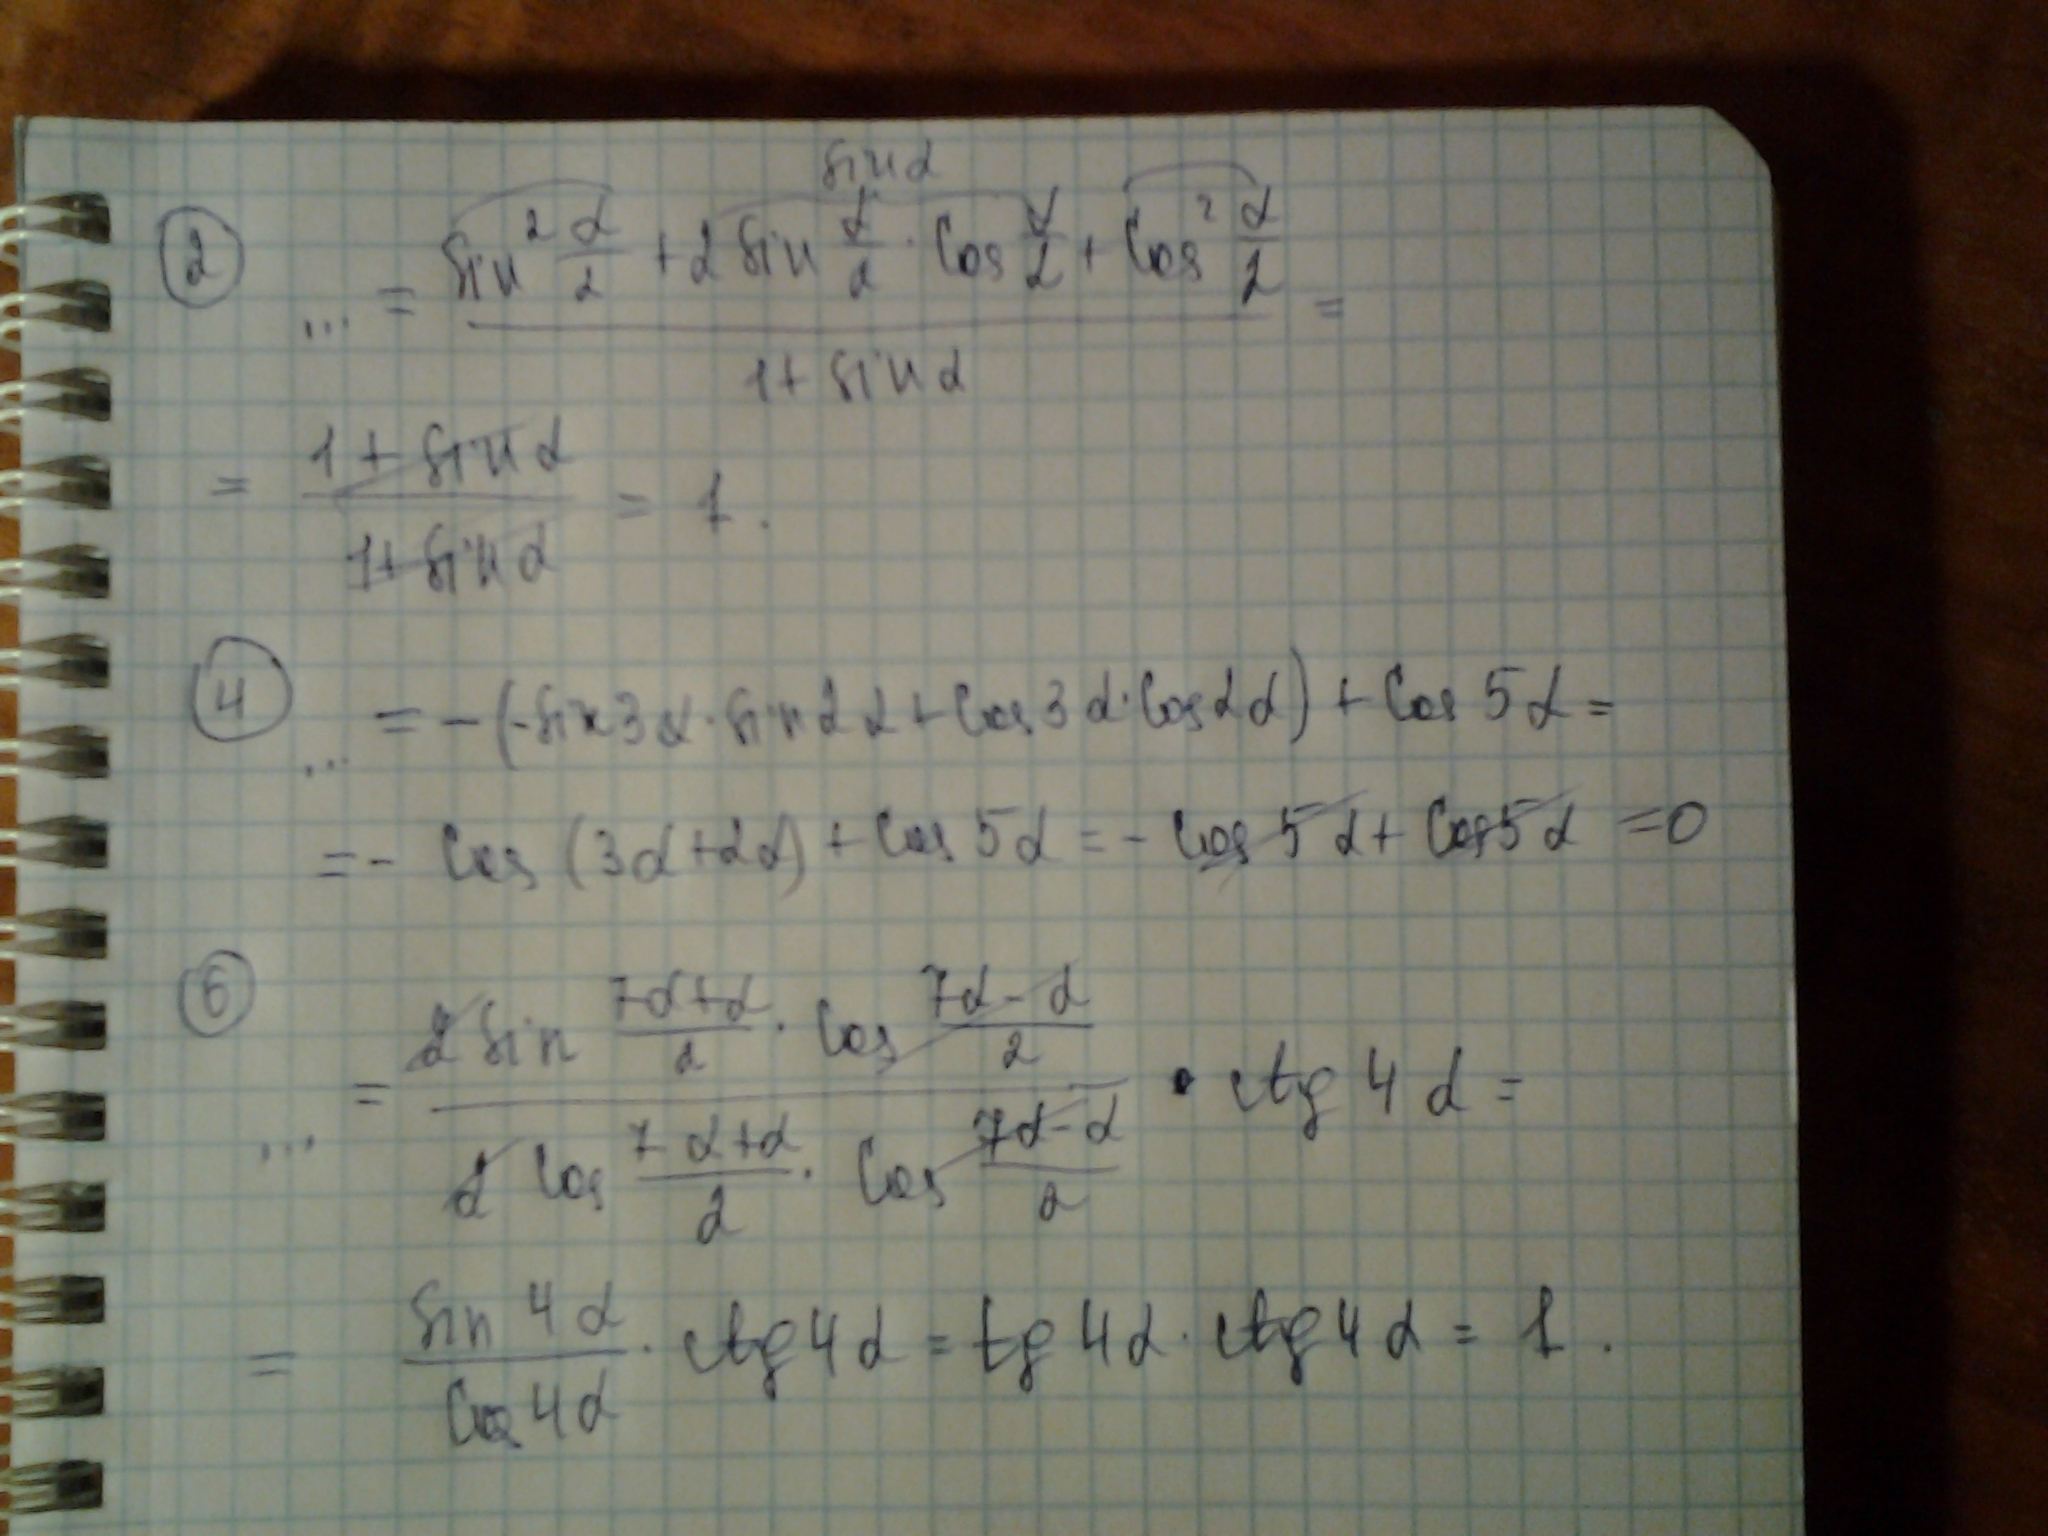 sin α
② ... = (sin² α/2 + 2 sin α/2 · cos α/2 + cos² α/2) / (1 + sin α) =
= (1 + sin α) / (1 + sin α) = 1.
④ ... = -(-sin 3α · sin 2α + cos 3α · cos 2α) + cos 5α =
= - cos (3α + 2α) + cos 5α = - cos 5α + cos 5α = 0
⑥ ... = (2 sin (7α + α)/2 · cos (7α - α)/2) / (2 cos (7α + α)/2 · cos (7α - α)/2) · ctg 4α =
= sin 4α / cos 4α · ctg 4α = tg 4α · ctg 4α = 1.